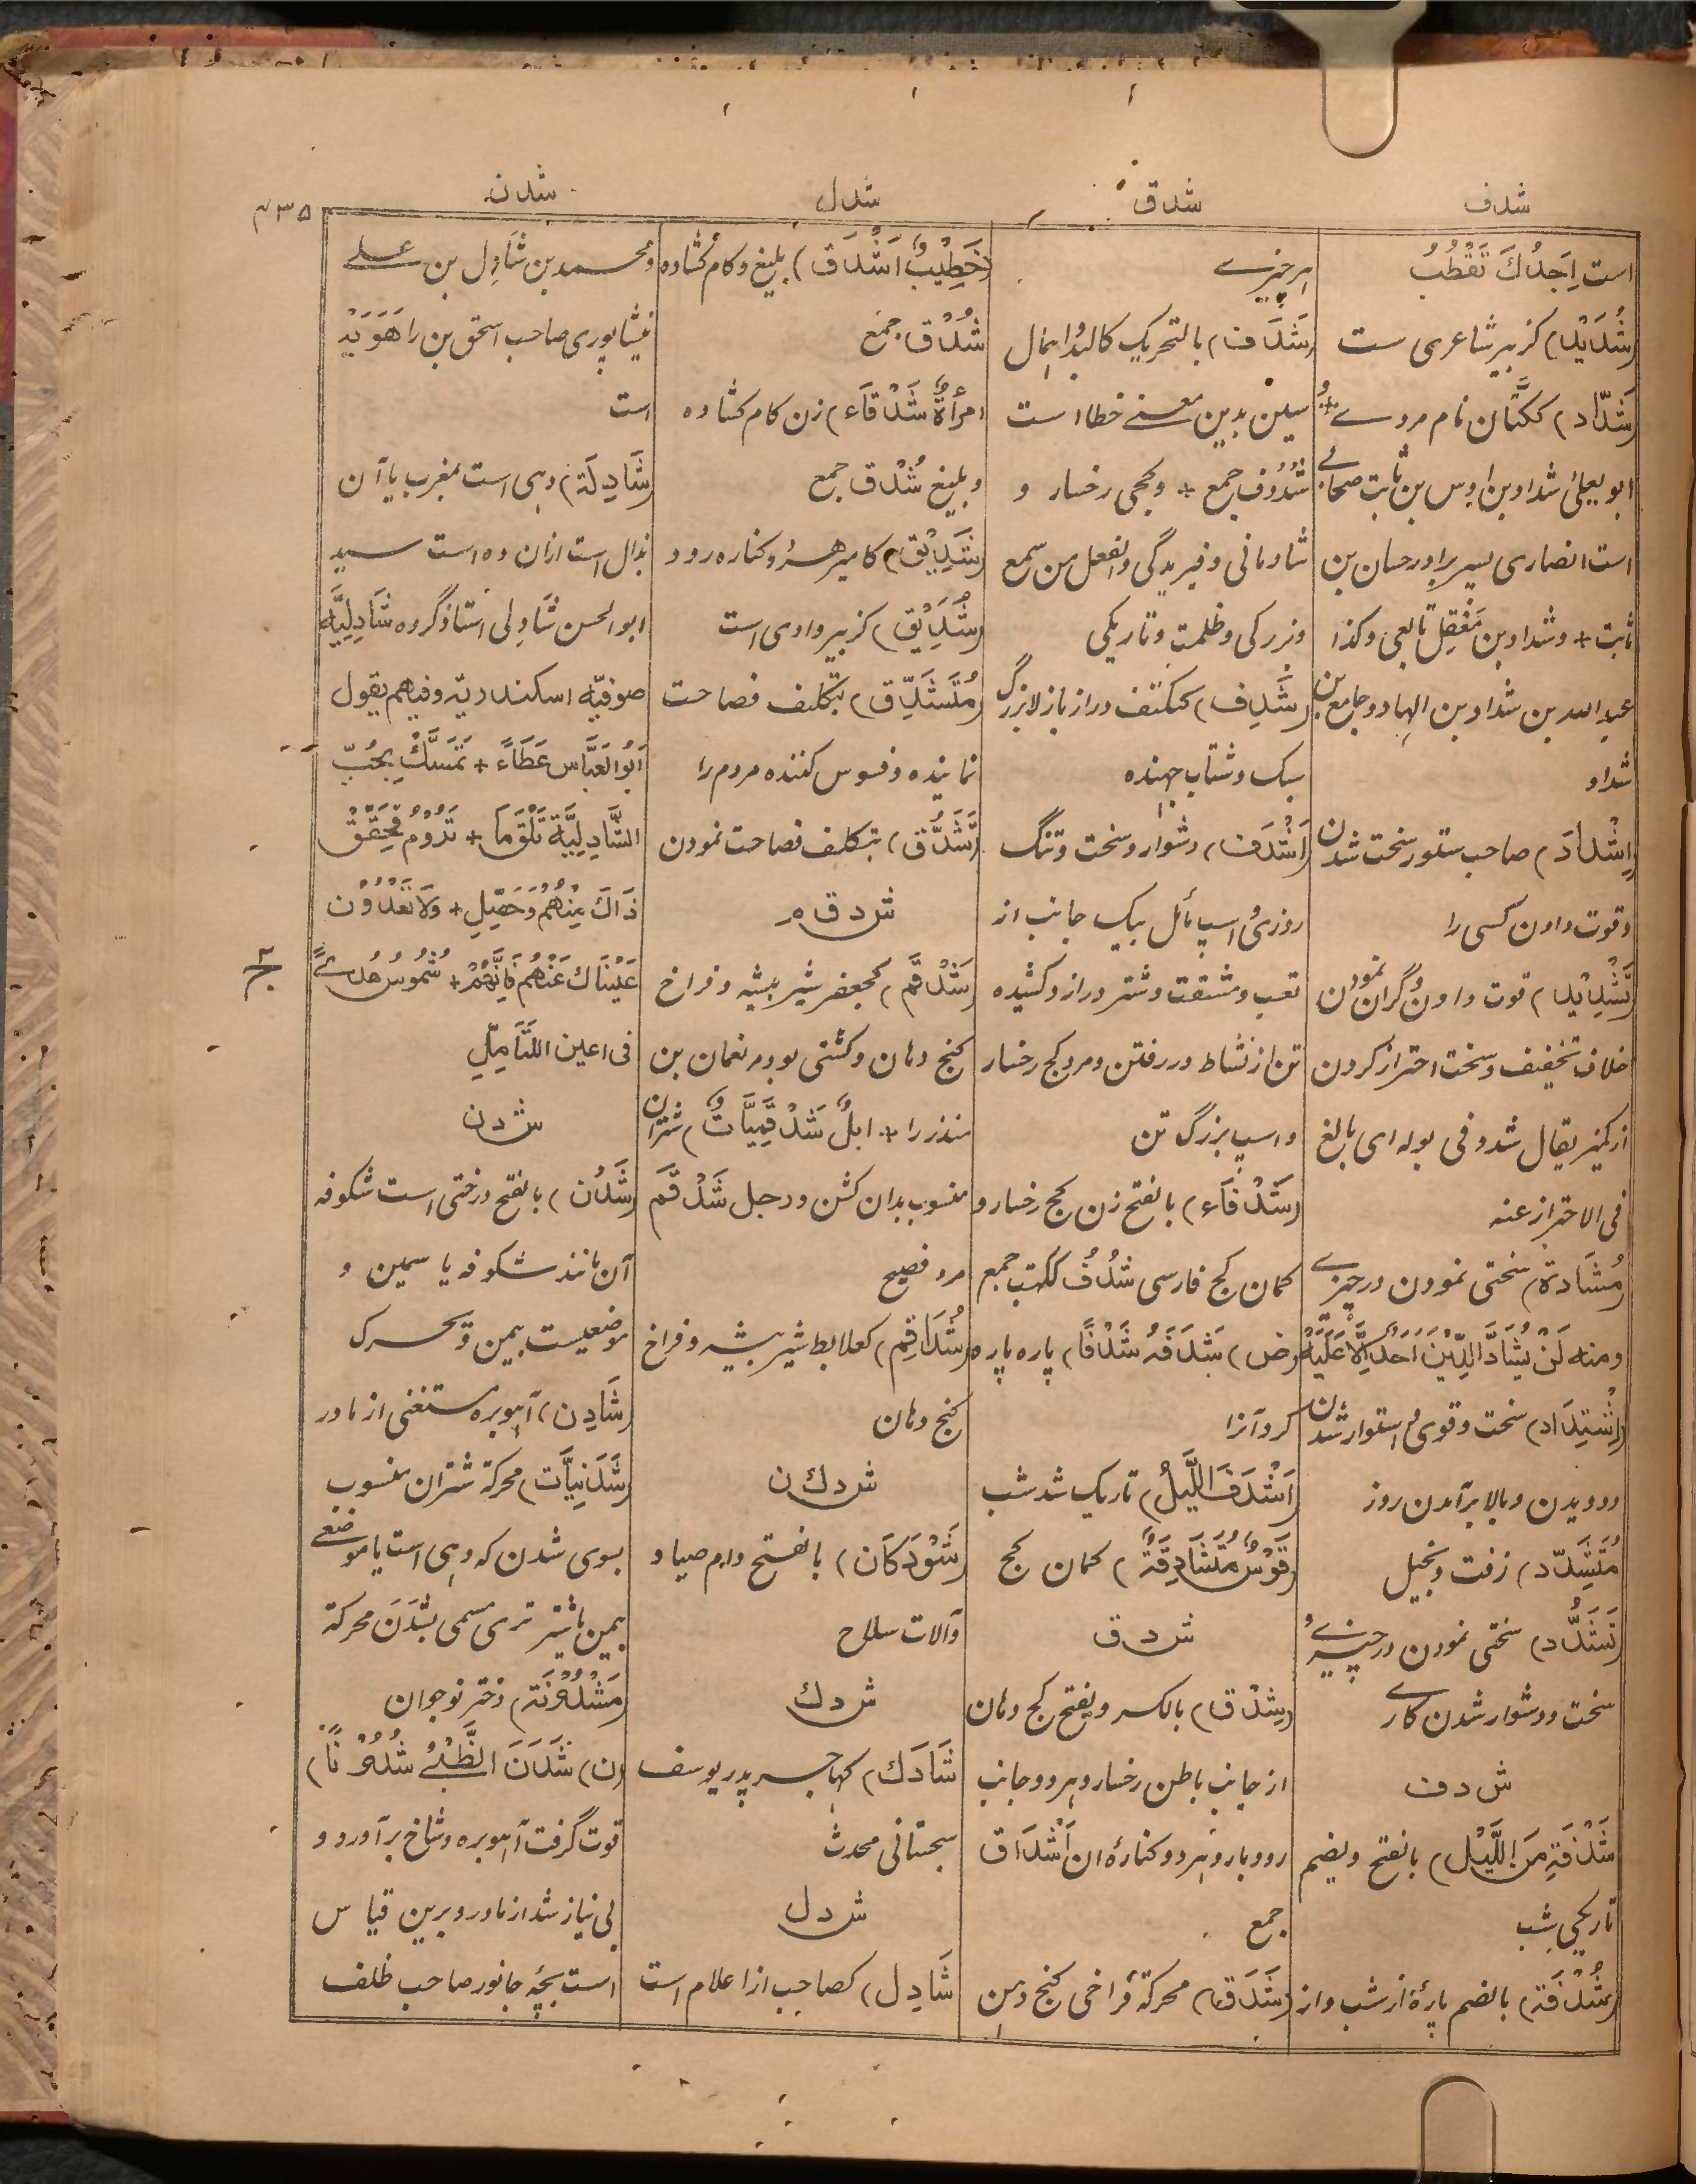 شدف
شدق
شدل
شدن
۴۳۵
است اَجِدُكَ تَقْطُبُ
(شُدَيْد) کزبیر شاعری ست
(شَدَّاد) ککتّان نام مردے و
ابو یعلیٰ شداد بن اوس بن ثابت صحابے
است انصاری پسر برادر حسان بن
ثابت + و شداد بن مَعْقِل تابعی و کذا
عبد الله بن شداد بن الهاد و جامع بن
شداد
(اِشْدَاد) صاحب ستور سخت شدن
و قوت دادن کسی را
(تَشْدِيْد) قوت دادن و گران نمودن
خلاف تخفیف و سخت احتراز کردن
از کمیز یقال شدد فی بوله ای بالغ
فی الاحتراز عنه
(مُشَادَّة) سختی نمودن در چیزے
و منه لَنْ يُشَادَّ الدِّيْنَ اَحَدٌ اِلَّا غَلَبَهُ
(اِشْتِدَاد) سخت و قوی و استوار شدن
و دویدن و بالا برآمدن روز
(مُتَشَدِّد) زفت و بخیل
(تَشَدُّد) سختی نمودن در چیزے و
سخت و دشوار شدن کارے
ش د ف
(شَدْفَة مِنَ اللَّيْل) بالفتح و یضم
تاریکی شب
(شُدْفَة) بالضم پارۀ از شب و از
هر چیزے
(شَدَف) بالتحریک کالبد و اهمال
سین بدین معنے خطا است
شُدُوْف جمع + و کجی رخسار و
شادمانی و فیریدگی و الفعل من سمع
و زیرکی و ظلمت و تاریکی
(شَدِف) ککتف دراز باز لا بزرگ
سبک و شتاب جهنده
(اَشْدَف) دشوار و سخت و تنگ
روزی و اسپ مائل بیک جانب از
تعب و مشقت و شتر دراز و کشیده
تن از نشاط در رفتن و مرد کج رخسار
و اسپ بزرگ تن
(شَدْفَاء) بالفتح زن کج رخسار و
کمان کج فارسی شُدُفٌ ککتب جمع
(ض) شَدَفَهُ شَدْفًا) پاره پاره
کرد آنرا
(اَشْدَفَ اللَّيْلُ) تاریک شد شب
(قَوْسٌ مُتَشَادِفَةٌ) کمان کج
ش د ق
(شِدْق) بالکسر و یفتح کج دهان
از جانب باطن رخسار و هر دو جانب
رودبار و هر دو کنارۀ ان اَشْدَاق
جمع
(شَدَق) محرکة فراخی کنج دهن
(خَطِيْبٌ اَشْدَق) بلیغ و کام گشاده
شُدْق جمع
امرأةٌ شَدْقَاء) زن کام کشاده
و بلیغ شُدْق جمع
(شَدِيْق) کامیر هرزه و کناره رود
(شُدَيْق) کزبیر وادی است
(مُتَشَدِّق) بتکلف فصاحت
نماینده و فسوس کننده مردم را
(تَشَدُّق) بتکلف فصاحت نمودن
ش د ق م
(شَدْقَم) کجعفر شیر بیشه و فراخ
کنج دهان و کشنی بود مر نعمان بن
منذر را + ابلٌ شَدْقَمِيَّاتٌ) شتران
منسوب بدان کشن و رجل شَدْقَم
مرد فصیح
(شُدَاقِم) کعلابط شیر بیشه و فراخ
کنج دهان
ش د ك ن
(شَوْدَكَان) بالفتح دام صیاد
و آلات سلاح
ش د ك
(شَادَك) کهاجر پدر یوسف
سجستانی محدث
ش د ل
(شَادِل) کصاحب از اعلام است
و محمد بن شَادِل بن علے
نیشاپوری صاحب اسحق بن راهَوَيْه
است
(شَادِلَة) دهی است بمغرب یا آن
بذال است ازان ده است سید
ابو الحسن شَادِلی استاذ گروه شَادِلِيَّه
صوفیّه اسکندریّه و فیهم یقول
اَبُو الْعَبَّاس عَطَاءً + تَمَسَّكْ بِحُبِّ
الشَّادِلِيَّةِ تَلْقَ مَا + تَرُوْمُ فَحَقِّقْ
ذَاكَ مِنْهُمْ وَ حَصِّلِ + وَلَا تَعْدُوَنْ
عَيْنَاكَ عَنْهُمْ فَاِنَّهُمْ + شُمُوْسُ هُدًے
فی اعین المتأمِلِ
ش د ن
(شَدْن) بالفتح درختی است شکوفه
آن مانند شکوفه یاسمین و
موضعیست بیمن و یحرک
(شَادِن) آهو بره مستغنی از مادر
(شَدَنِيَّات) محرکة شتران منسوب
بسوی شدن که دهی است یا موضعے
بیمن یا شتر نری مسمی بشَدَن محرکة
(مَشْدُوْنَة) دختر نوجوان
(ن) شَدَنَ الظَّبْيُ شُدُوْنًا)
قوت گرفت آهو بره و شاخ برآورد و
بی نیاز شد از مادر و برین قیاس
است بچۀ جانور صاحب ظلف